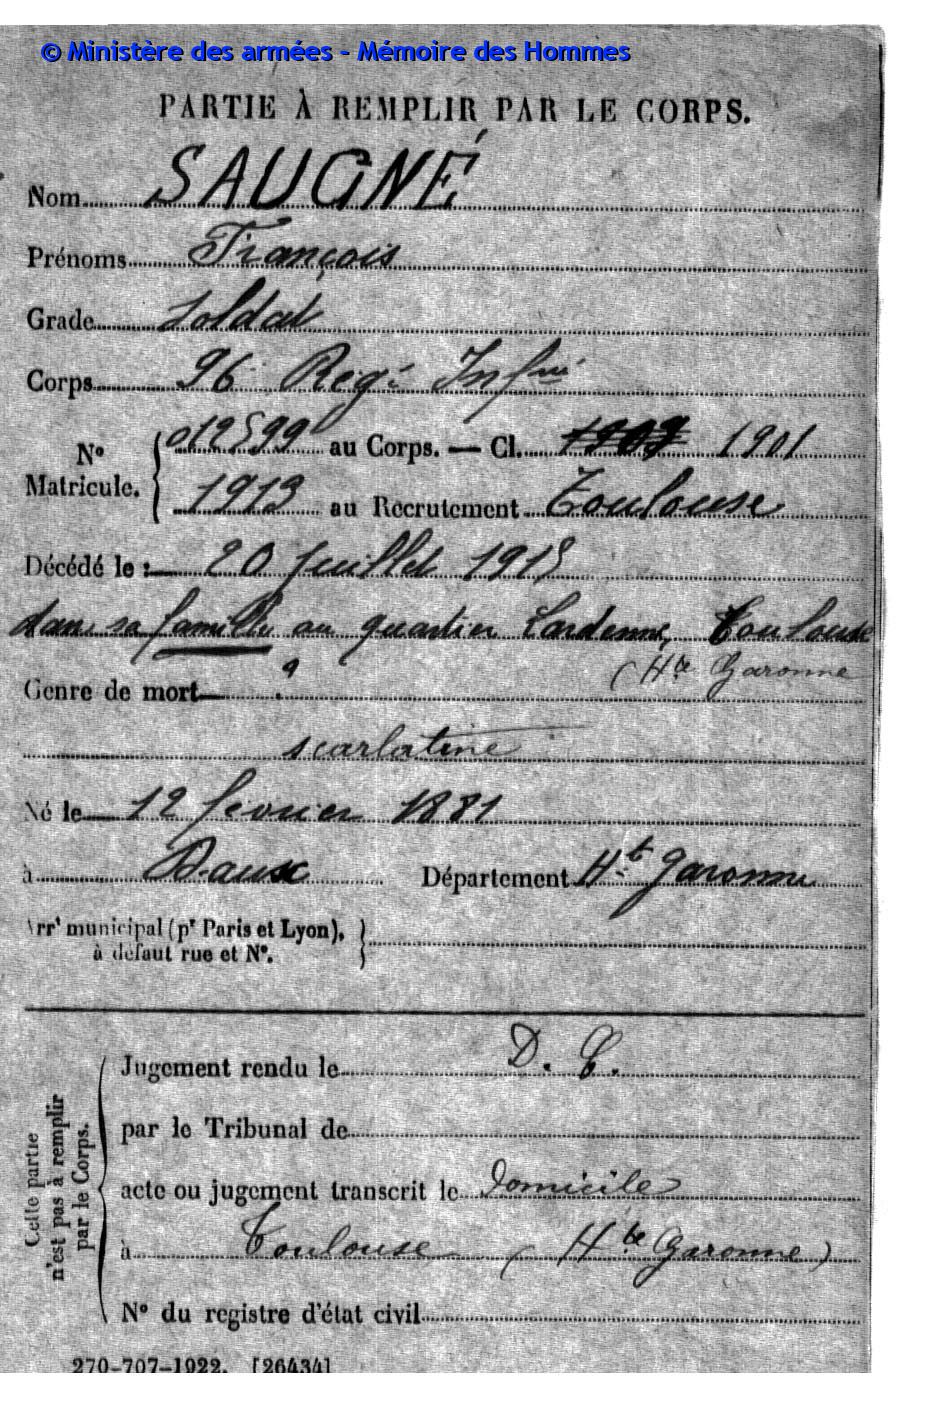 © Ministère des armées - Mémoire des Hommes
PARTIE À REMPLIR PAR LE CORPS.
Nom SAUGNÉ
Prénoms François
Grade Soldat
Corps 96 Regt Infrie
No Matricule. 012599 au Corps. — Cl. 1901
1913 au Recrutement Toulouse
Décédé le : 20 Juillet 1915
dans sa famille au quartier Lardenne, Toulouse
(Hte Garonne
Genre de mort
scarlatine
Né le 12 février 1881
à Daux Département Hte Garonne
Arrt municipal (pr Paris et Lyon), à défaut rue et No.
Cette partie n'est pas à remplir par le Corps.
Jugement rendu le D. C.
par le Tribunal de
acte ou jugement transcrit le Domicile
à Toulouse (Hte Garonne)
No du registre d'état civil
270-707-1922. [26434]